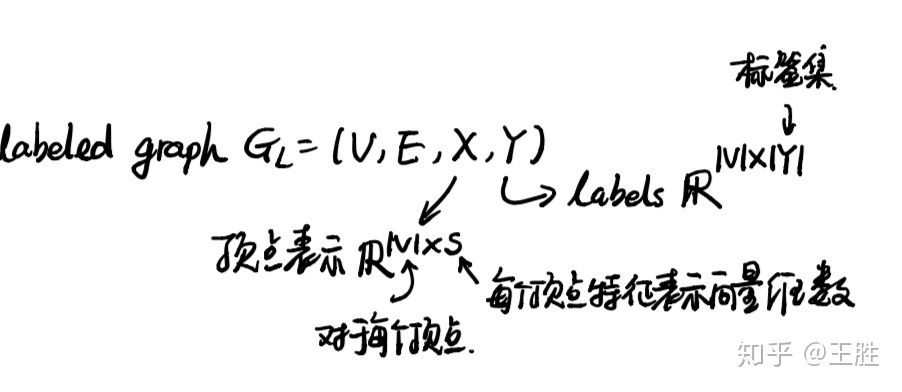 标签集.
labeled graph G_L = (V, E, X, Y)
labels ℝ^{|V|×|Y|}
顶点表示 ℝ^{|V|×S}
每个顶点特征表示向量维数
对于每个顶点.
知乎 @王胜